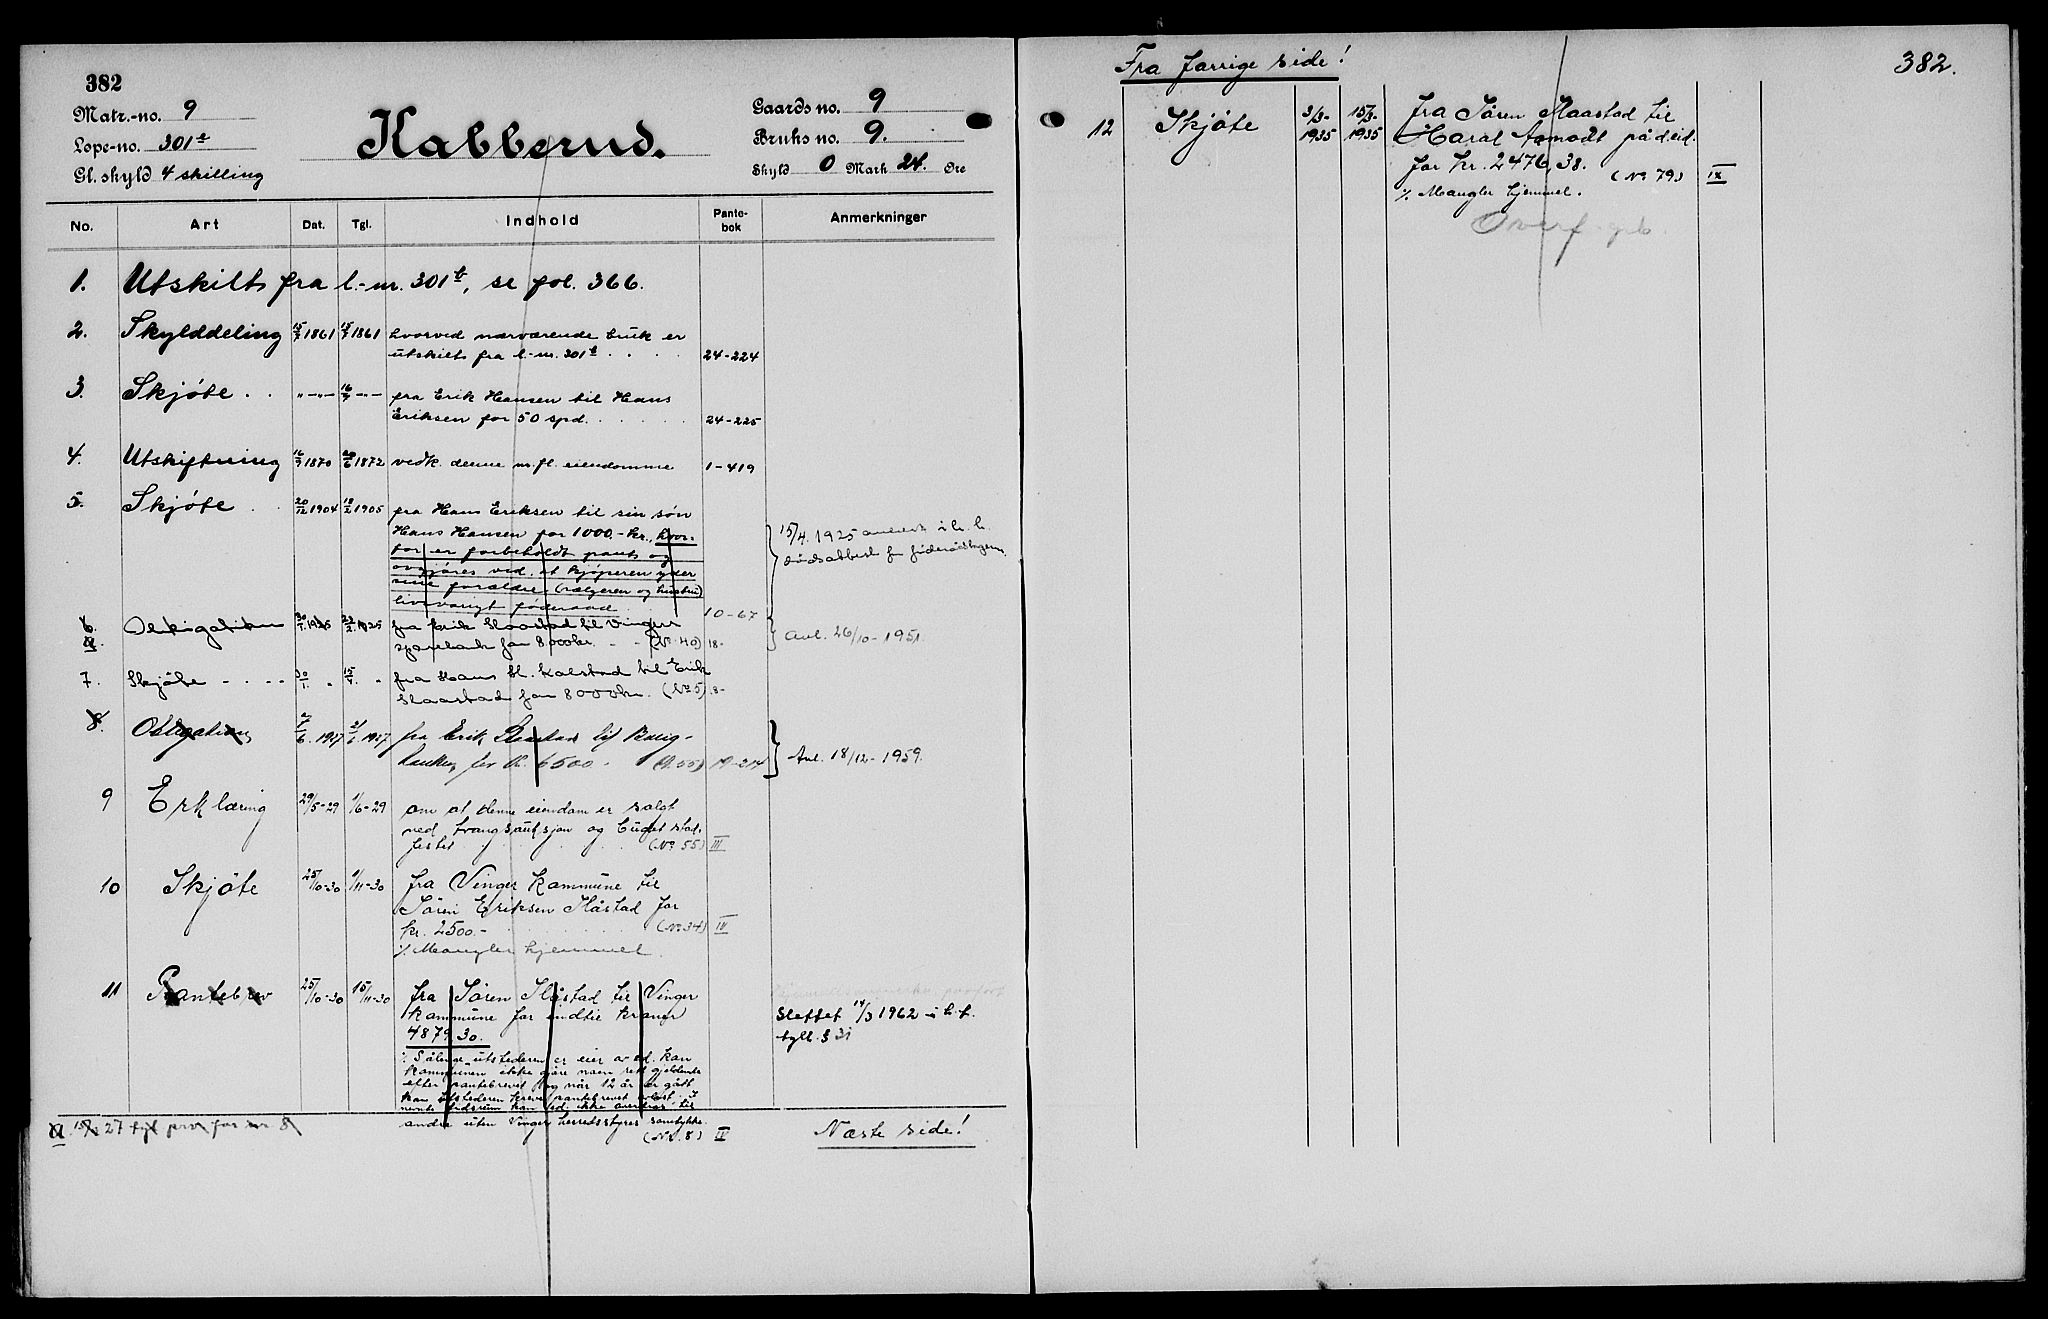 382
Matr.-no. 9
Løpe-no. 301ᵉ
Gl. skyld 4 skilling
Kabberud.
Gaards no. 9
Bruks no. 9.
Skyld 0 Mark 24. Øre
No. Art Dat. Tgl. Indhold Pante-bok Anmerkninger
1. Utskilt fra l.-nr. 301ᵇ, se fol. 366.
2. Skylddeling 15/7 1861 15/7 1861 hvorved nærværende bruk er
utskilt fra l.-nr. 301ᵇ . . . . 24-224
3. Skjøte . . "-"-" 16/7 -"- fra Erik Hansen til Hans
Eriksen for 50 spd. . . . . . 24-225
4. Utskiftning 16/9 1870 20/6 1872 vedk. denne m. fl. eiendomme 1-419
5. Skjøte . 20/12 1904 18/2 1905 fra Hans Eriksen til sin søn
Hans Hansen for 1000.- kr., hvor-
for er forbeholdt pant og
avgjøres ved, at kjøperen yder
sine forældre (sælgeren og hustru)
livsvarigt føderaad 10-67
15/4. 1925 anmerk. i h. h.
dødsattest for føderådtagern.
6. Obligation 30/1. 1925 23/2. 1925 fra Erik Slaastad til Vinger
a. sparebank for 8000 kr. - - (Nr. 40) 18-
Avl. 26/10-1951.
7. Skjøte - - - - 30/1. " 15/4. " fra Hans H. Kalstad til Erik
Slaastad for 8000 kr. (Nr 5) 18-
8. Obligation 2/6. 1927 2/6. 1927 fra Erik Slaastad til Kong-
banken for kr. 6500.- (N. 55) 19-214
Avl. 18/12-1959.
9 Erklæring 29/5-29 1/6-29 om at denne eiendom er solgt
ved tvangsauksjon og budet stad-
festet . . . . . (No 55) III
10 Skjøte 25/10-30 1/11-30 fra Vinger kommune til
Søren Eriksen Slåstad for
kr. 2500.- . . . . . (No 34) IV
·/. Mangler hjemmel.
11 Pantebrev 25/10-30 15/11-30 fra Søren Slåstad til Vinger
kommune for indtil kroner
4879,30.
·/. Sålenge utstederen er eier av ed. kan
kommunen ikke gjøre noen rett gjeldende
efter pantebrevet og når 12 år er gått
kan utstederen kreve pantebrevet avlest. I
nevnte tidsrum kan ed. ikke overdras til
andre uten Vinger herredsstyres samtykke.
(No. 8) IV
Slettet 14/3 1962 i h. t.
tgll. § 31
a 15/2 27 tgl prior for nr 8
Næste side!
Fra forrige side!
382.
12 Skjøte 3/3-1935 15/3-1935 fra Søren Slaastad til
Haral Aamodt på d. eid.
for kr. 2476,38. (No 79) IX
·/. Mangler hjemmel.
Overf.